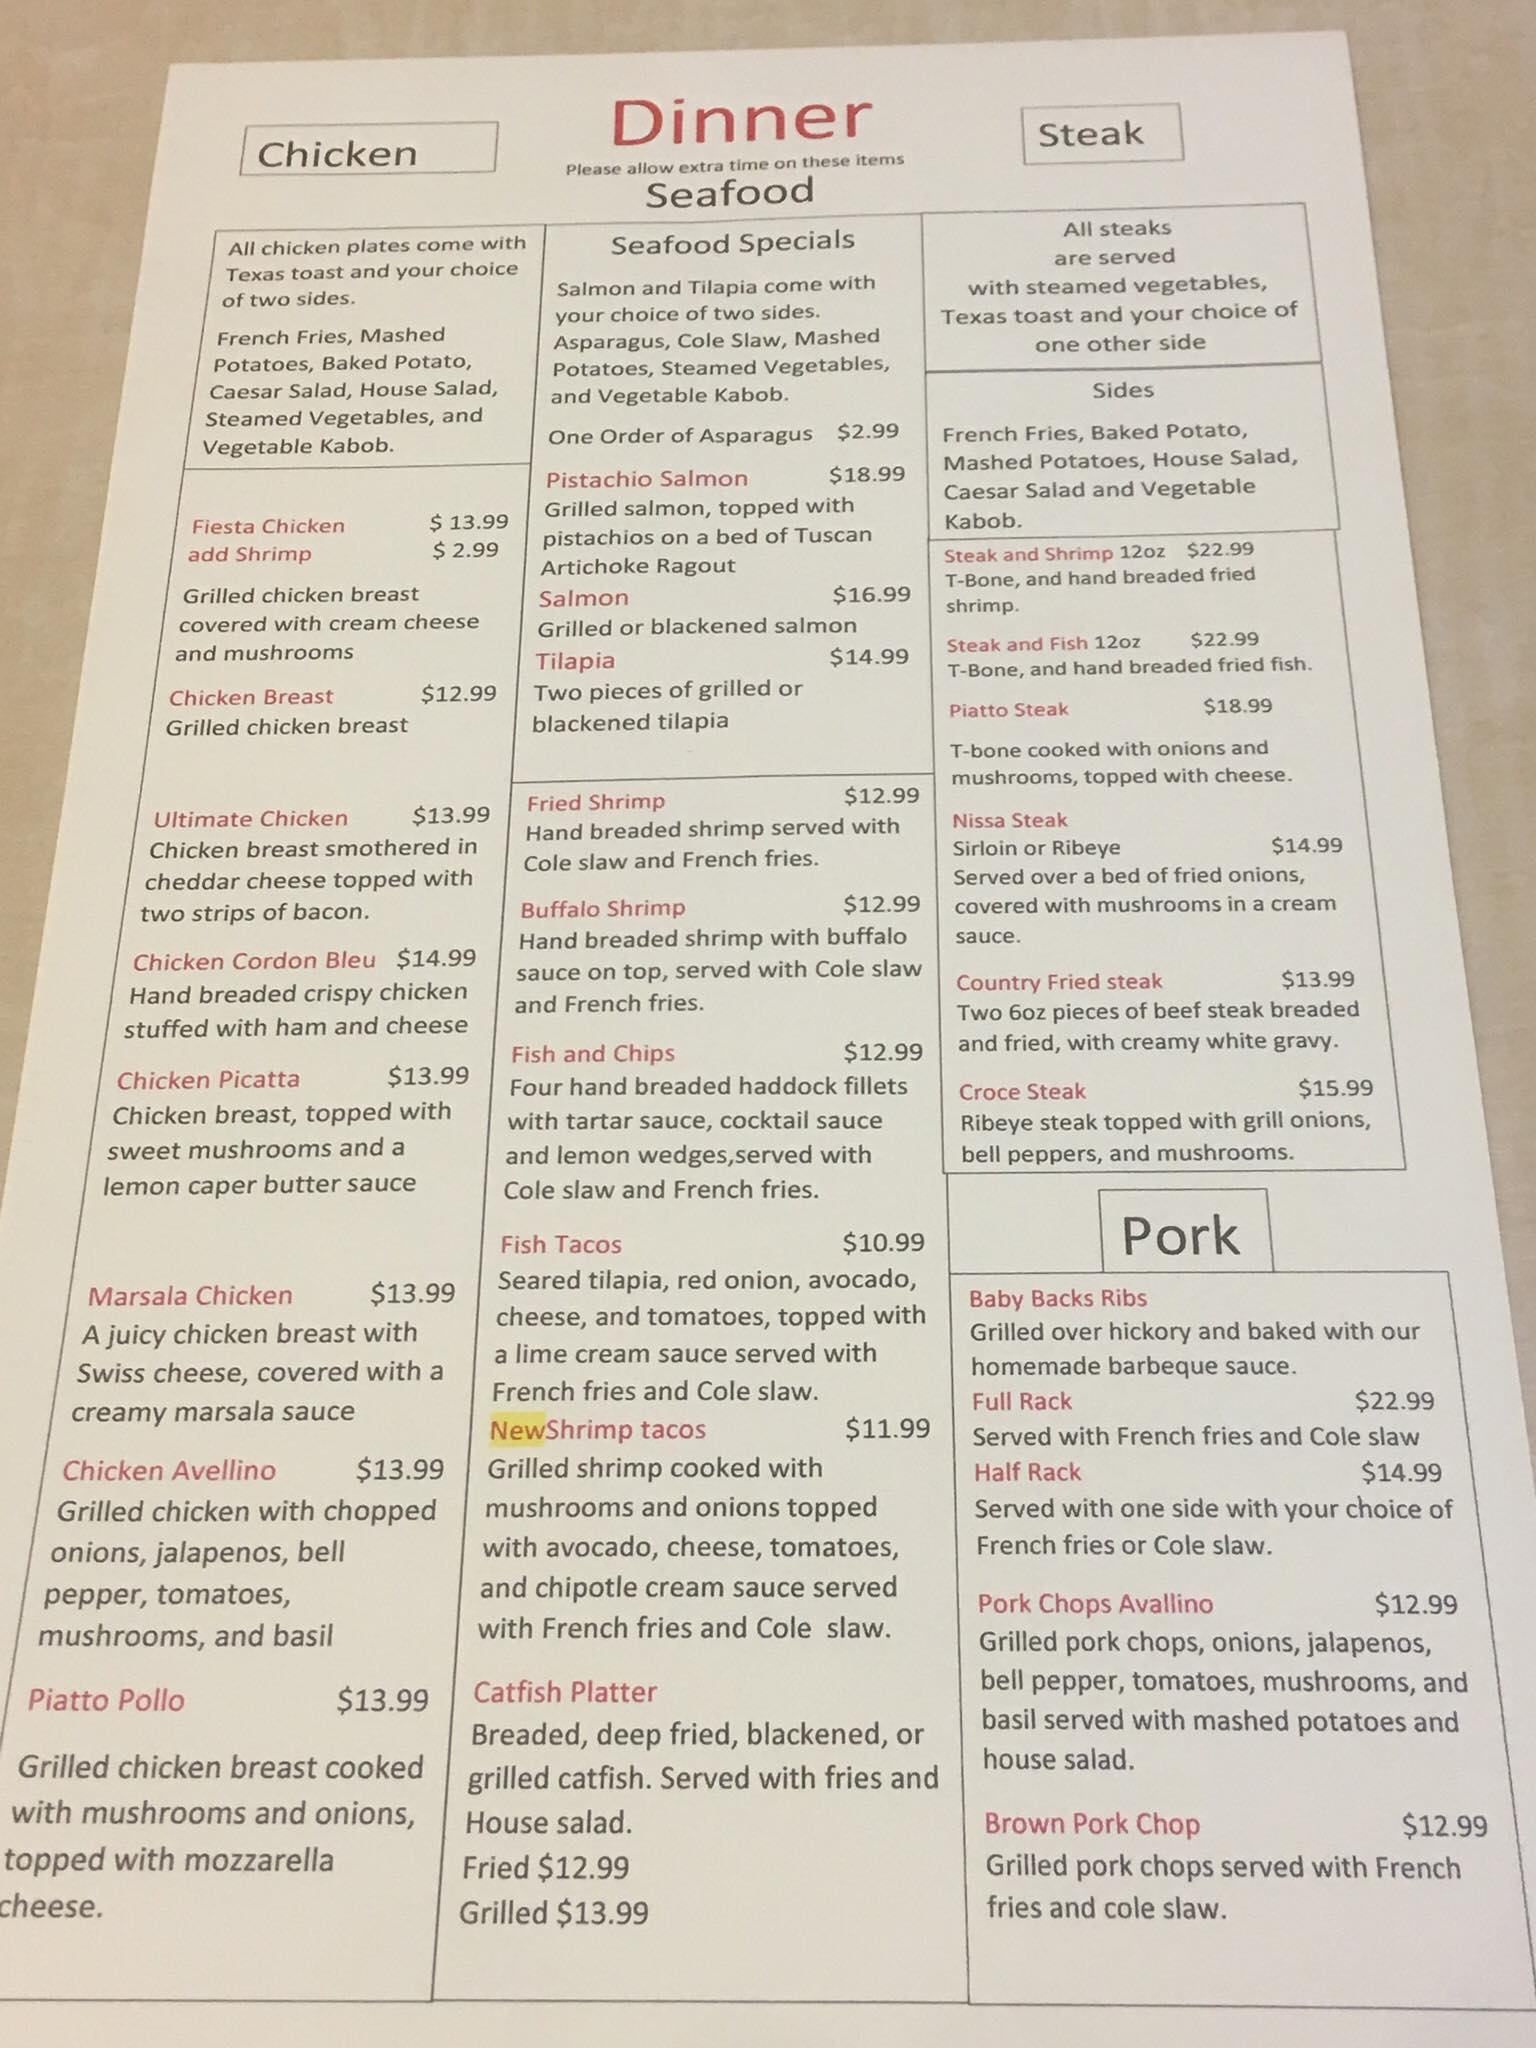 Dinner
Please allow extra time on these items
Chicken
Seafood
Steak
All chicken plates come with
Texas toast and your choice
of two sides.
French Fries, Mashed
Potatoes, Baked Potato,
Caesar Salad, House Salad,
Steamed Vegetables, and
Vegetable Kabob.
Fiesta Chicken $ 13.99
add Shrimp $ 2.99
Grilled chicken breast
covered with cream cheese
and mushrooms
Chicken Breast $12.99
Grilled chicken breast
Ultimate Chicken $13.99
Chicken breast smothered in
cheddar cheese topped with
two strips of bacon.
Chicken Cordon Bleu $14.99
Hand breaded crispy chicken
stuffed with ham and cheese
Chicken Picatta $13.99
Chicken breast, topped with
sweet mushrooms and a
lemon caper butter sauce
Marsala Chicken $13.99
A juicy chicken breast with
Swiss cheese, covered with a
creamy marsala sauce
Chicken Avellino $13.99
Grilled chicken with chopped
onions, jalapenos, bell
pepper, tomatoes,
mushrooms, and basil
Piatto Pollo $13.99
Grilled chicken breast cooked
with mushrooms and onions,
topped with mozzarella
cheese.
Seafood Specials
Salmon and Tilapia come with
your choice of two sides.
Asparagus, Cole Slaw, Mashed
Potatoes, Steamed Vegetables,
and Vegetable Kabob.
One Order of Asparagus $2.99
Pistachio Salmon $18.99
Grilled salmon, topped with
pistachios on a bed of Tuscan
Artichoke Ragout
Salmon $16.99
Grilled or blackened salmon
Tilapia $14.99
Two pieces of grilled or
blackened tilapia
Fried Shrimp $12.99
Hand breaded shrimp served with
Cole slaw and French fries.
Buffalo Shrimp $12.99
Hand breaded shrimp with buffalo
sauce on top, served with Cole slaw
and French fries.
Fish and Chips $12.99
Four hand breaded haddock fillets
with tartar sauce, cocktail sauce
and lemon wedges,served with
Cole slaw and French fries.
Fish Tacos $10.99
Seared tilapia, red onion, avocado,
cheese, and tomatoes, topped with
a lime cream sauce served with
French fries and Cole slaw.
NewShrimp tacos $11.99
Grilled shrimp cooked with
mushrooms and onions topped
with avocado, cheese, tomatoes,
and chipotle cream sauce served
with French fries and Cole slaw.
Catfish Platter
Breaded, deep fried, blackened, or
grilled catfish. Served with fries and
House salad.
Fried $12.99
Grilled $13.99
All steaks
are served
with steamed vegetables,
Texas toast and your choice of
one other side
Sides
French Fries, Baked Potato,
Mashed Potatoes, House Salad,
Caesar Salad and Vegetable
Kabob.
Steak and Shrimp 12oz $22.99
T-Bone, and hand breaded fried
shrimp.
Steak and Fish 12oz $22.99
T-Bone, and hand breaded fried fish.
Piatto Steak $18.99
T-bone cooked with onions and
mushrooms, topped with cheese.
Nissa Steak
Sirloin or Ribeye $14.99
Served over a bed of fried onions,
covered with mushrooms in a cream
sauce.
Country Fried steak $13.99
Two 6oz pieces of beef steak breaded
and fried, with creamy white gravy.
Croce Steak $15.99
Ribeye steak topped with grill onions,
bell peppers, and mushrooms.
Pork
Baby Backs Ribs
Grilled over hickory and baked with our
homemade barbeque sauce.
Full Rack $22.99
Served with French fries and Cole slaw
Half Rack $14.99
Served with one side with your choice of
French fries or Cole slaw.
Pork Chops Avallino $12.99
Grilled pork chops, onions, jalapenos,
bell pepper, tomatoes, mushrooms, and
basil served with mashed potatoes and
house salad.
Brown Pork Chop $12.99
Grilled pork chops served with French
fries and cole slaw.